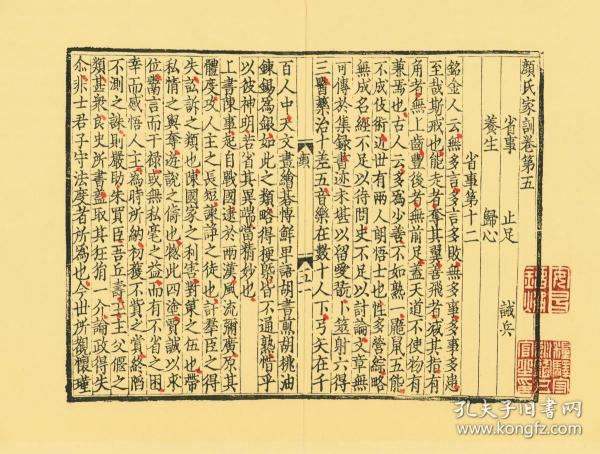 顏氏家訓卷第五
省事 止足 誡兵
養生 歸心
省事第十二
銘金人云無多言多言多敗無多事多事多患
至哉斯戒也能走者奪其翼善飛者減其指有
角者無上齒豐後者無前足蓋天道不使物有
兼焉也古人云多為少善不如執一鼫鼠五能
不成伎術近世有兩人朗悟士也性多營綜略
無成名經不足以待問史不足以討論文章無
可傳於集錄書迹未堪以留愛翫卜筮射六得
三醫藥治十差五音樂在數十人下弓矢在千
顏 五
百人中天文畫繪棊博鮮卑語胡書煎胡桃油
鍊錫為銀如此之類略得梗槩皆不通熟惜乎
以彼神明若省其異端當精妙也
上書陳事起自戰國逮於兩漢風流彌廣原其
體度攻人主之長短諫諍之徒也訐羣臣之得
失訟訴之類也陳國家之利害對策之伍也帶
私情之與奪遊說之儔也總此四塗賈誠以求
位鬻言而干祿或無私毫之益而有不省之困
幸而感悟人主為時所納初獲不貲之賞終陷
不測之誅則嚴助朱買臣吾丘壽王主父偃之
類甚衆良史所書蓋取其狂狷一介論政得失
尒非士君子守法度者所為也今世所覩懷瑾
孔夫子旧书网
www.kongfz.com